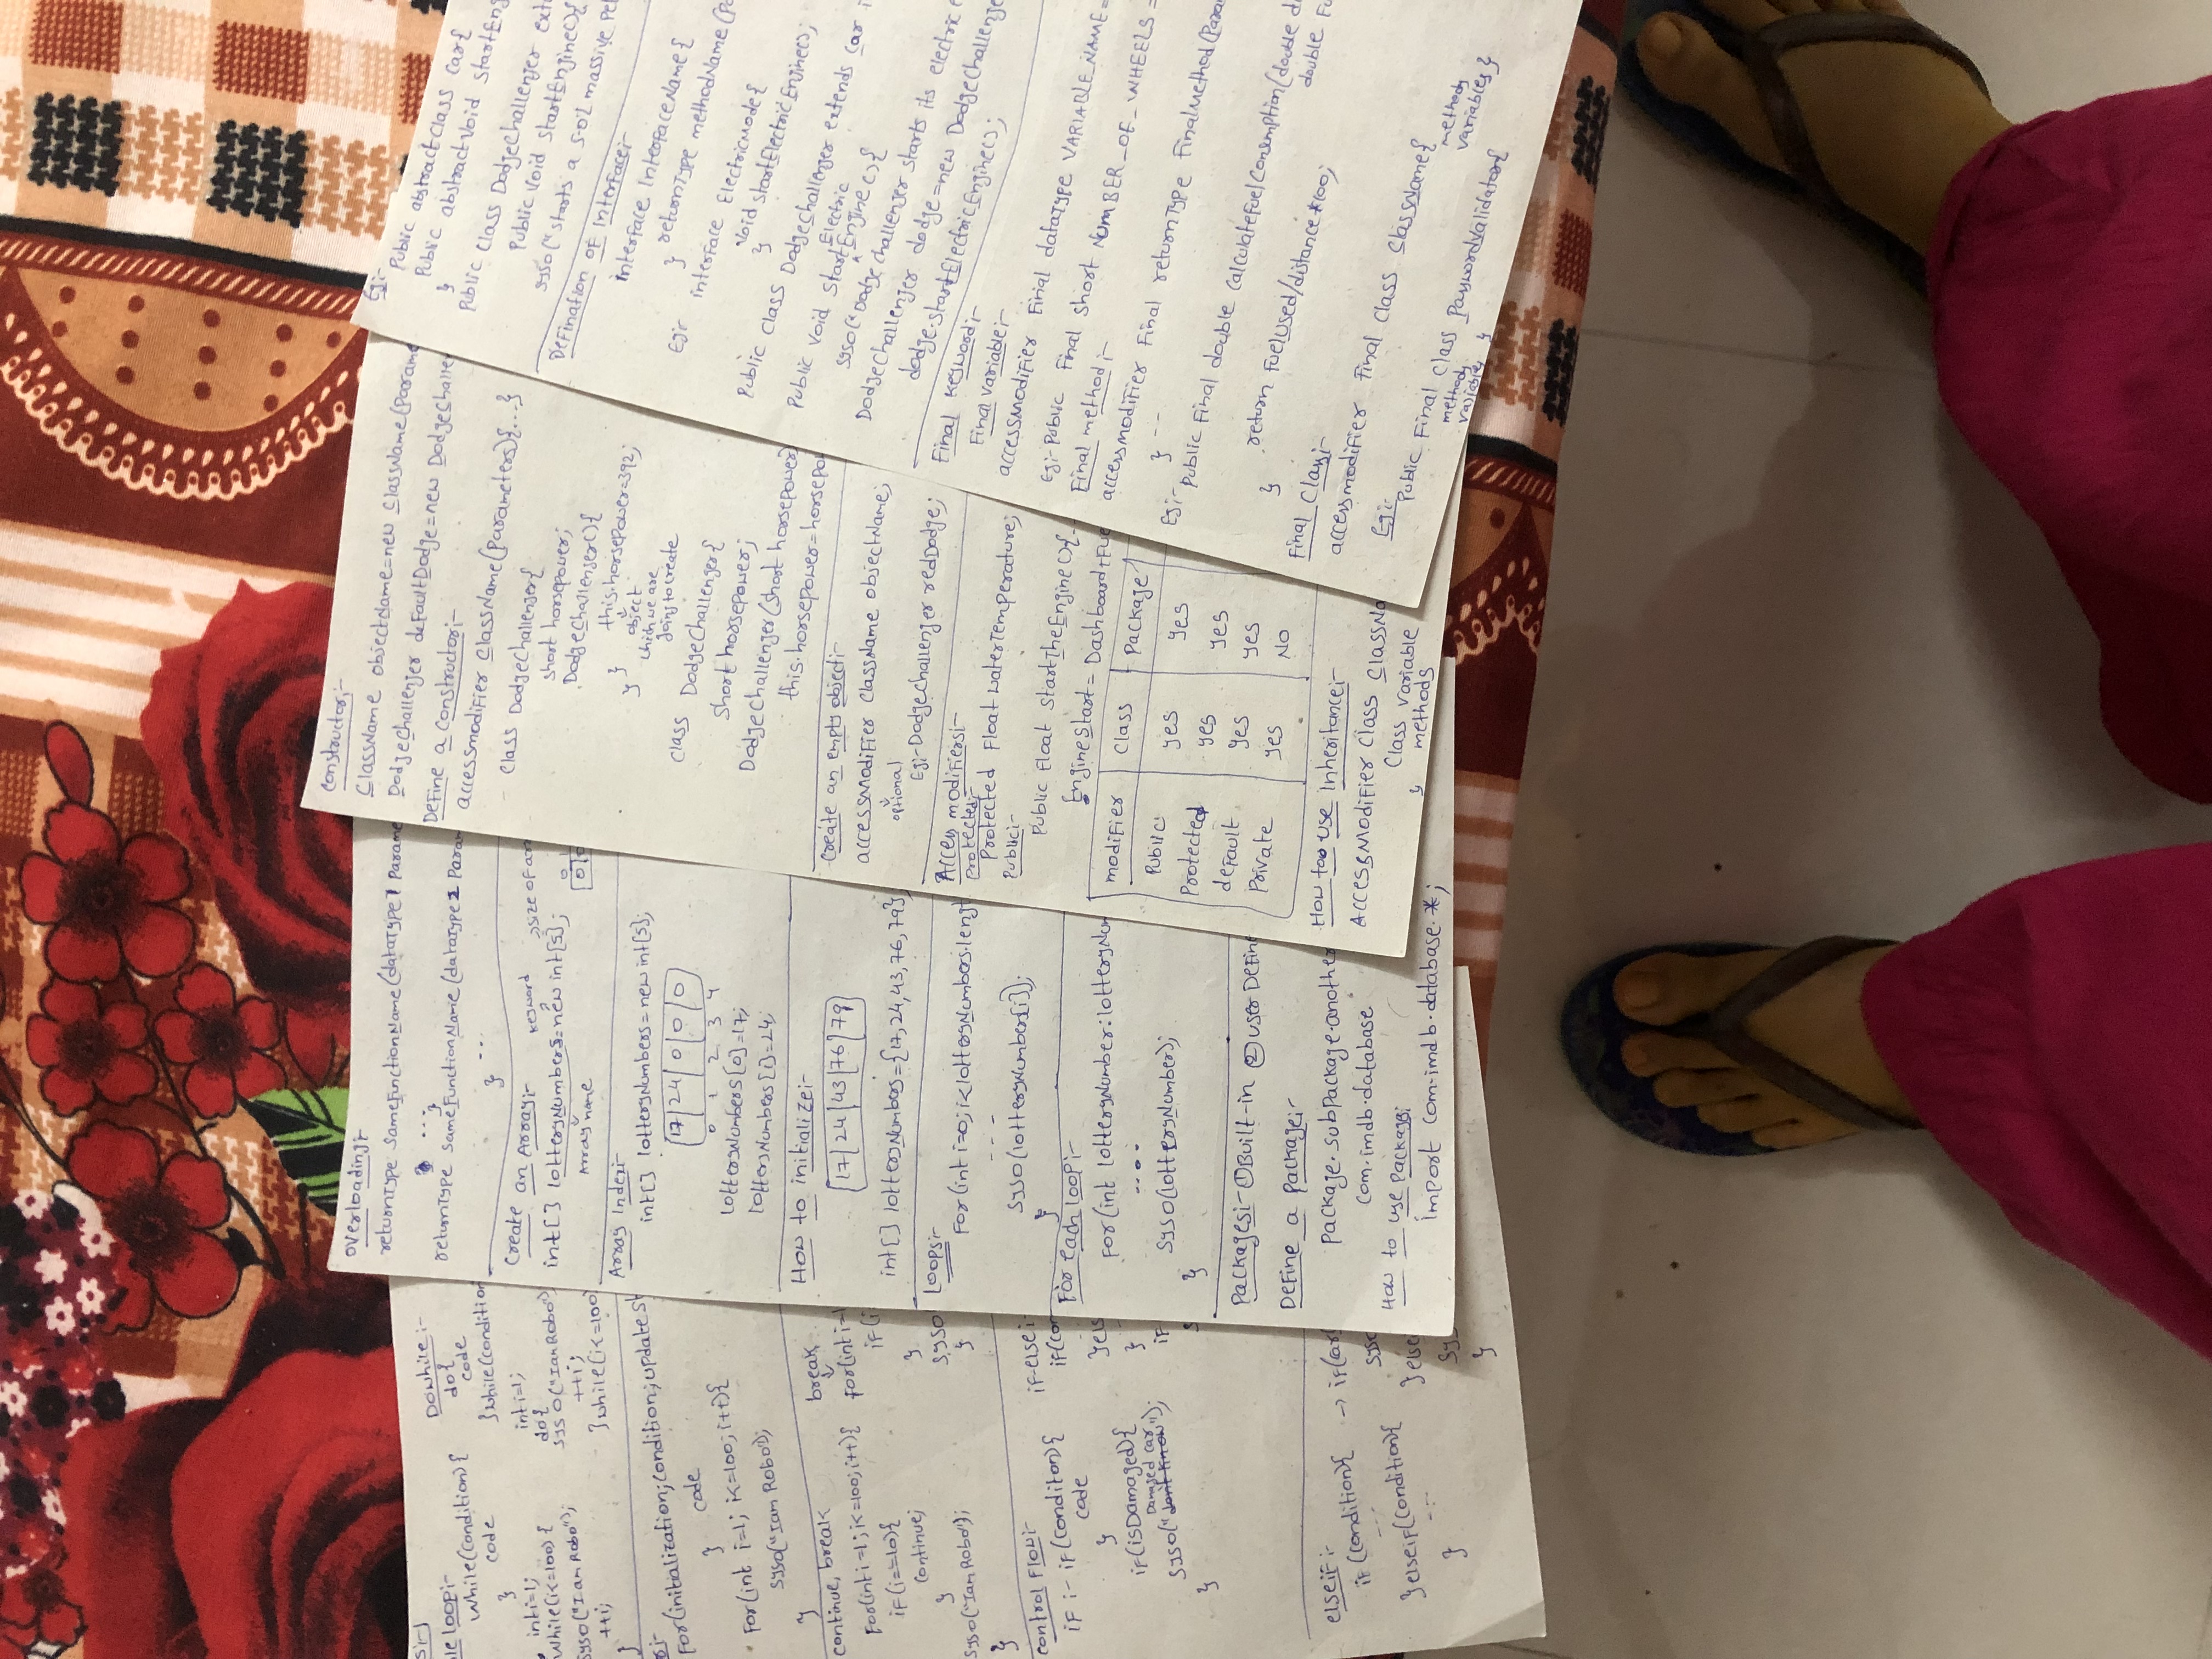 le loop:-
While(Condition){
code
}
int i=1;
While(i<=100) {
syso("I am Robo");
++i;
}
Dowhile:-
do{
code
}while(condition
int i=1;
do{
syso("I am Robo")
++i;
}while(i<=100
For(initialization;condition;update st
code
}
For(int i=1; i<=100; i++){
syso("Iam Robo");
}
continue, break
For(int i=1; i<=100; i++){
if(i==10){
continue;
}
syso("Iam Robo");
}
break
for(int i=1
if(i
}
syso
}
control Flow:-
iF :- iF(Conditon){
code
}
if(isDamaged){
Damaged car
syso("don't know");
}
iF-else:-
iF(con
}els
}
iF
s
elseiF:-
iF (Condition){
...
}elseiF(Condition{
...
}
→ iF(car
syso
}else
sy
}
overloading:-
returnType SameFunctionName(dataType1 Parame
...
}
returnType SameFunctionName(dataType2 Param
...
}
Create an Array:-
keyword
size of ar
int[] lotteryNumbers=new int[5];
Array name
Array Index:-
int[] lotteryNumbers=new int[5];
17 24 0 0 0
0 1 2 3 4
lotteryNumbers[0]=17;
lotteryNumbers[1]=24;
How to initialize:-
17 24 43 76 79
int[] lotteryNumbers={17,24,43,76,79}
Loops:-
For(int i=0; i<lotteryNumbers.lengt
---
syso(lotteryNumber[i]);
}
For each loop:-
For(int lotteryNumber:lotteryNum
....
syso(lotteryNumber);
}
Packages:- ①Built-in ②user Define
DeFine a package:-
Package.subPackage.another
com.imdb.database
How to use package:
import com.imdb.database.*;
Constructor:-
ClassName objectName=new ClassName(Parame
DodgeChallenger deFaultDodge=new DodgeChalle
DeFine a Constructor:-
accessmodiFier ClassName(Parameters){...}
Class DodgeChallenger{
Short horsepower;
DodgeChallenger(){
this.horsepower=392;
}
}
object
which we are
going to create
Class DodgeChallenger{
Short horsepower;
DodgeChallenger(short horsepower)
this.horsepower=horsepo
Create an empty object:-
accessModiFier ClassName objectName;
optional
Eg:-DodgeChallenger redDodge;
Access modifiers:-
Protected:-
Protected Float waterTemperature;
Public:-
Public Float StartTheEngine(){
EngineStart= Dashboard+Fue
modiFier Class Package
Public yes yes
Protected yes yes
deFault yes yes
Private yes NO
How too use Inheritance:-
AccessModiFier Class ClassNa
Class variable
methods
}
Eg:-
Public abstract class Car{
Public abstract void StartEng
}
Public Class DodgeChallenger exte
Public void StartEngine(){
syso("starts a 5.0L massive pet
DeFination oF InterFace:-
interFace InterFaceName{
returnType methodName(Pa
}
Eg:-
interFace ElectricMode{
void startElectricEngine();
}
Public class DodgeChallenger extends Car i
Electric
Public void StartEngine(){
syso("Dodge challenger starts its electric e
DodgeChallenger dodge=new DodgeChallenge
dodge.startElectricEngine();
Final Keyword:-
Final variable:-
accessModiFier Final dataType VARIABLE_NAME=
Eg:-Public Final Short NUMBER_OF_WHEELS =
Final method:-
accessmodiFier Final returnType FinalMethod(Para
} --
Eg:-
Public Final double CalculateFuelConsumption(double di
double Fu
return FuelUsed/distance*100;
}
Final Class:-
accessmodiFier Final class ClassName{
methods
variables }
Eg:-
Public Final Class PasswordValidator{
methods
variables }